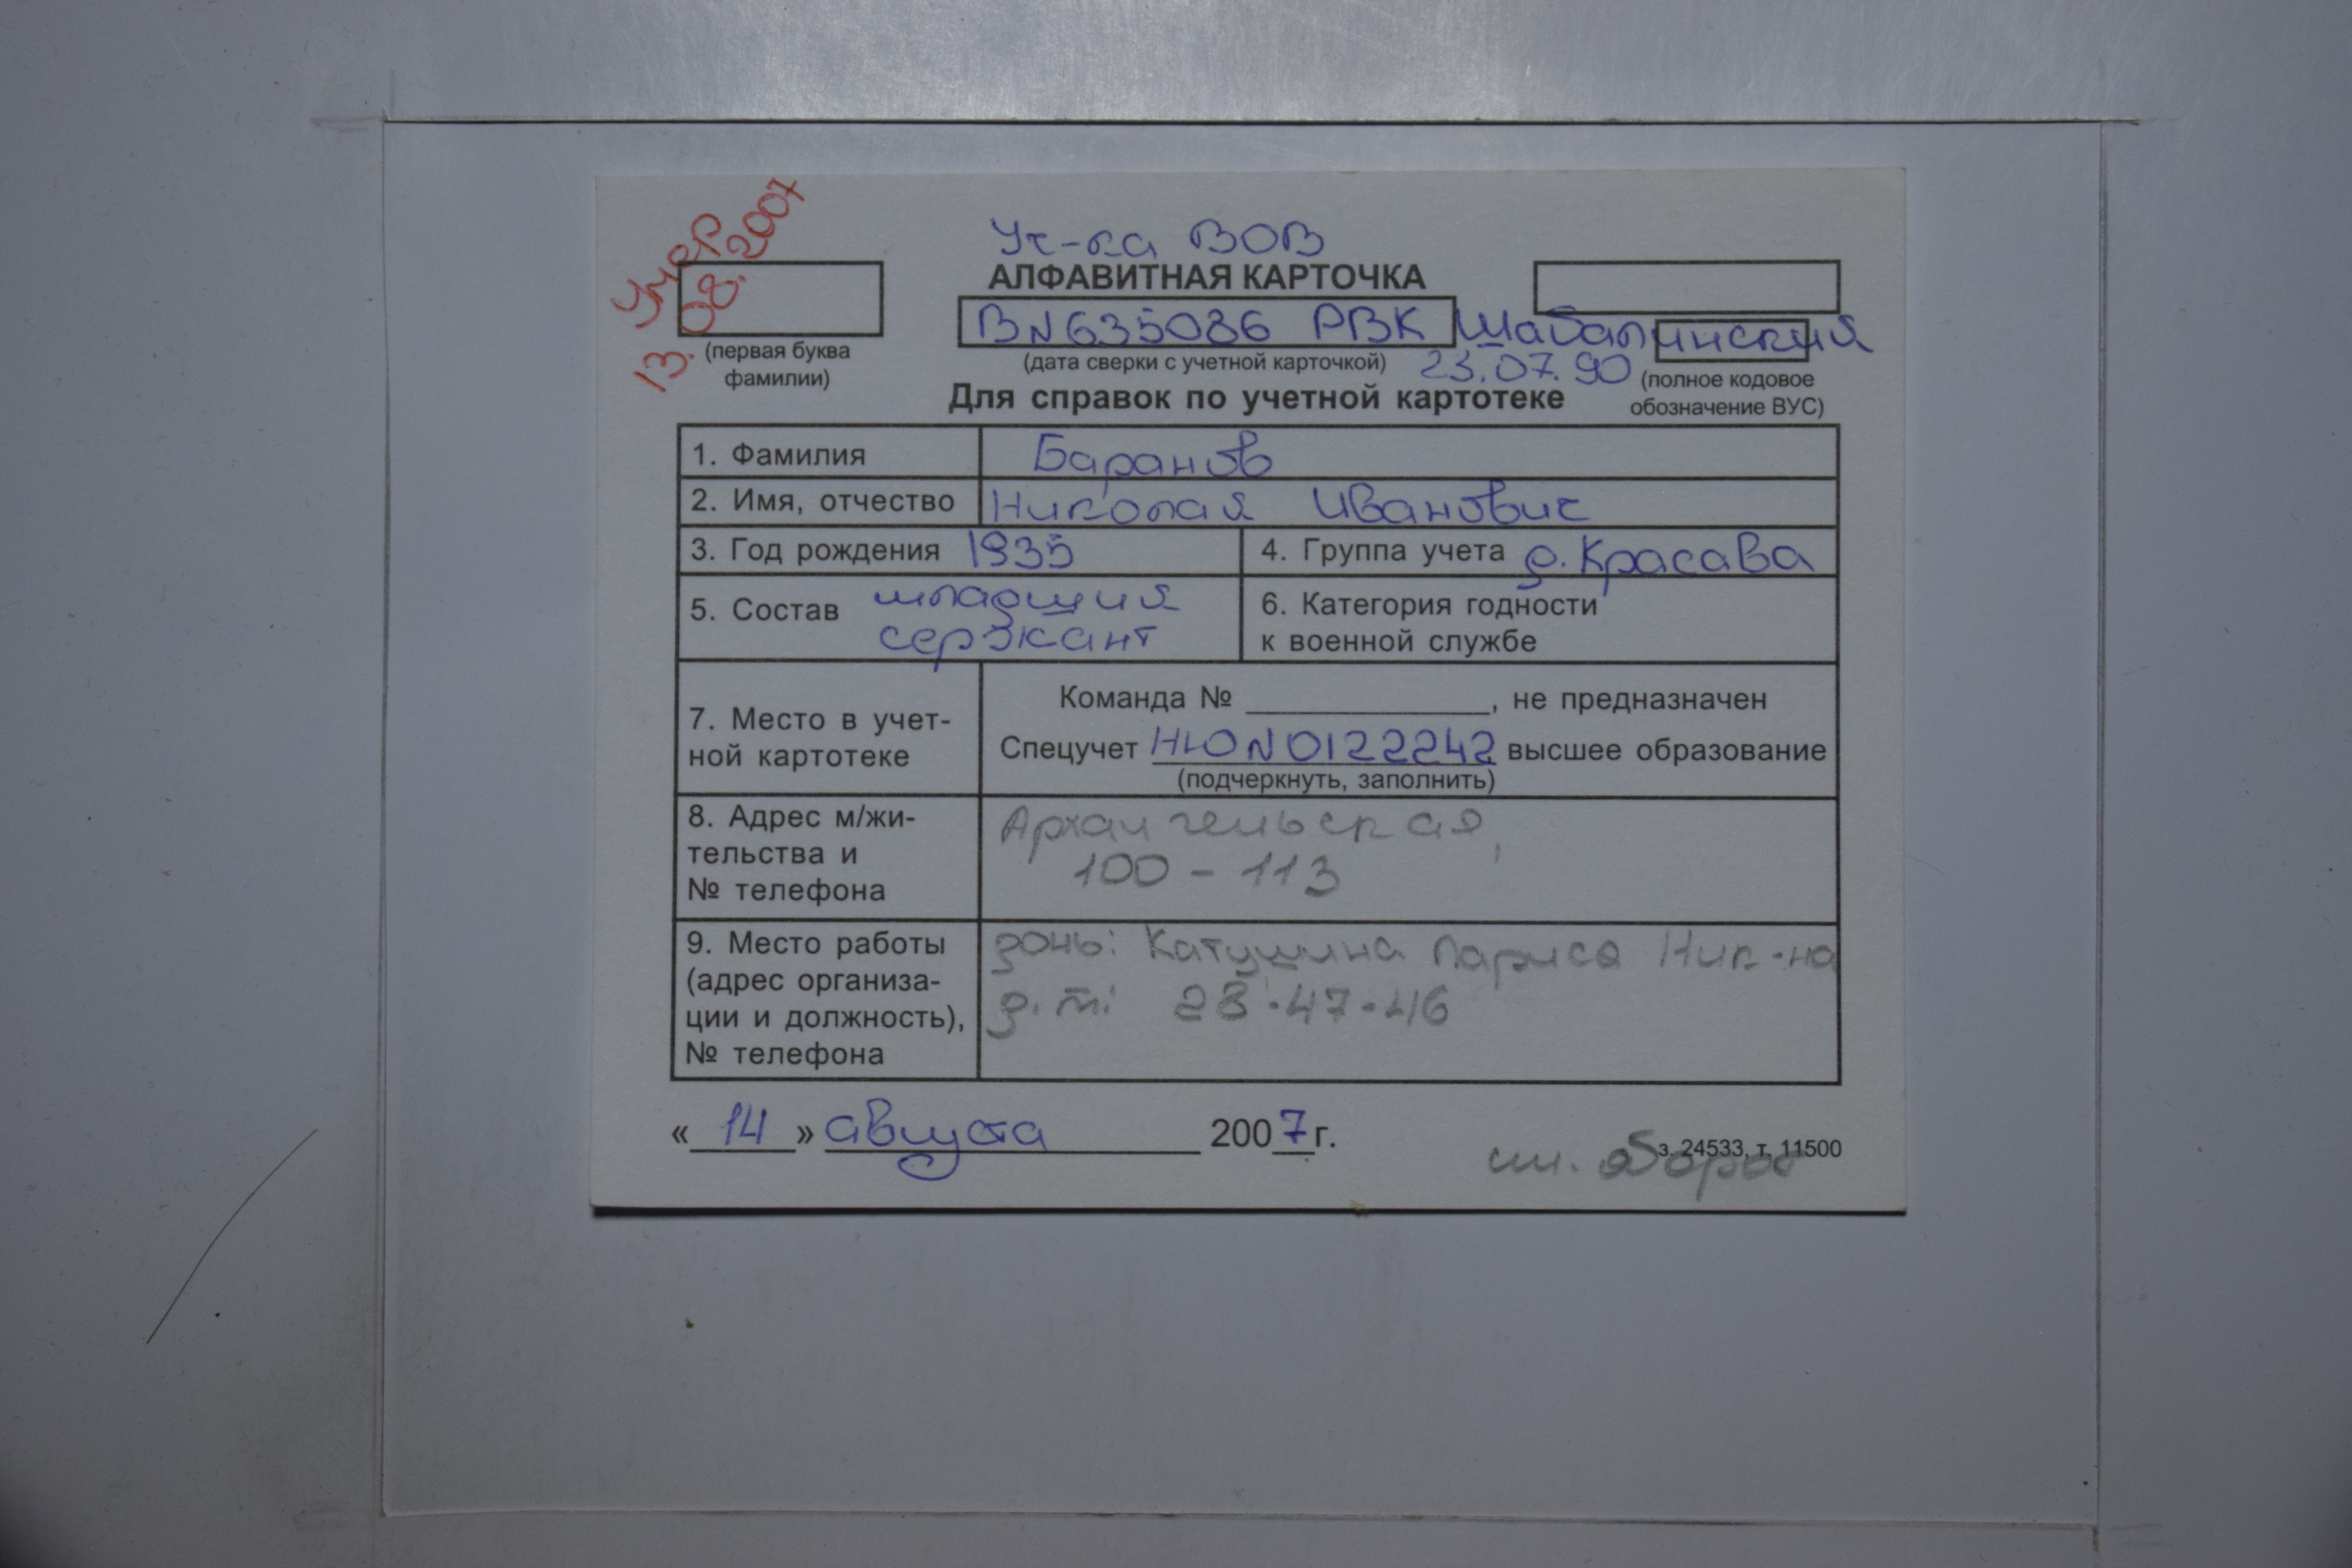 Умер
13. 08. 2007
Уч-ка ВОВ
АЛФАВИТНАЯ КАРТОЧКА
ВN635086 РВК Шабалинский
(первая буква
фамилии)
(дата сверки с учетной карточкой)
23.07.90
(полное кодовое
обозначение ВУС)
Для справок по учетной картотеке
1. Фамилия Баранов
2. Имя, отчество Николай Иванович
3. Год рождения 1935 4. Группа учета д. Красава
5. Состав младший
сержант
6. Категория годности
к военной службе
7. Место в учет-
ной картотеке
Команда № ____, не предназначен
Спецучет НЮN0122242 высшее образование
(подчеркнуть, заполнить)
8. Адрес м/жи-
тельства и
№ телефона
Архангельская,
100 - 113
9. Место работы
(адрес организа-
ции и должность),
№ телефона
дочь: Катушина Лариса Ник-на
д.т: 28-47-46
« 14 » августа 2007 г.
з. 24533, т. 11500